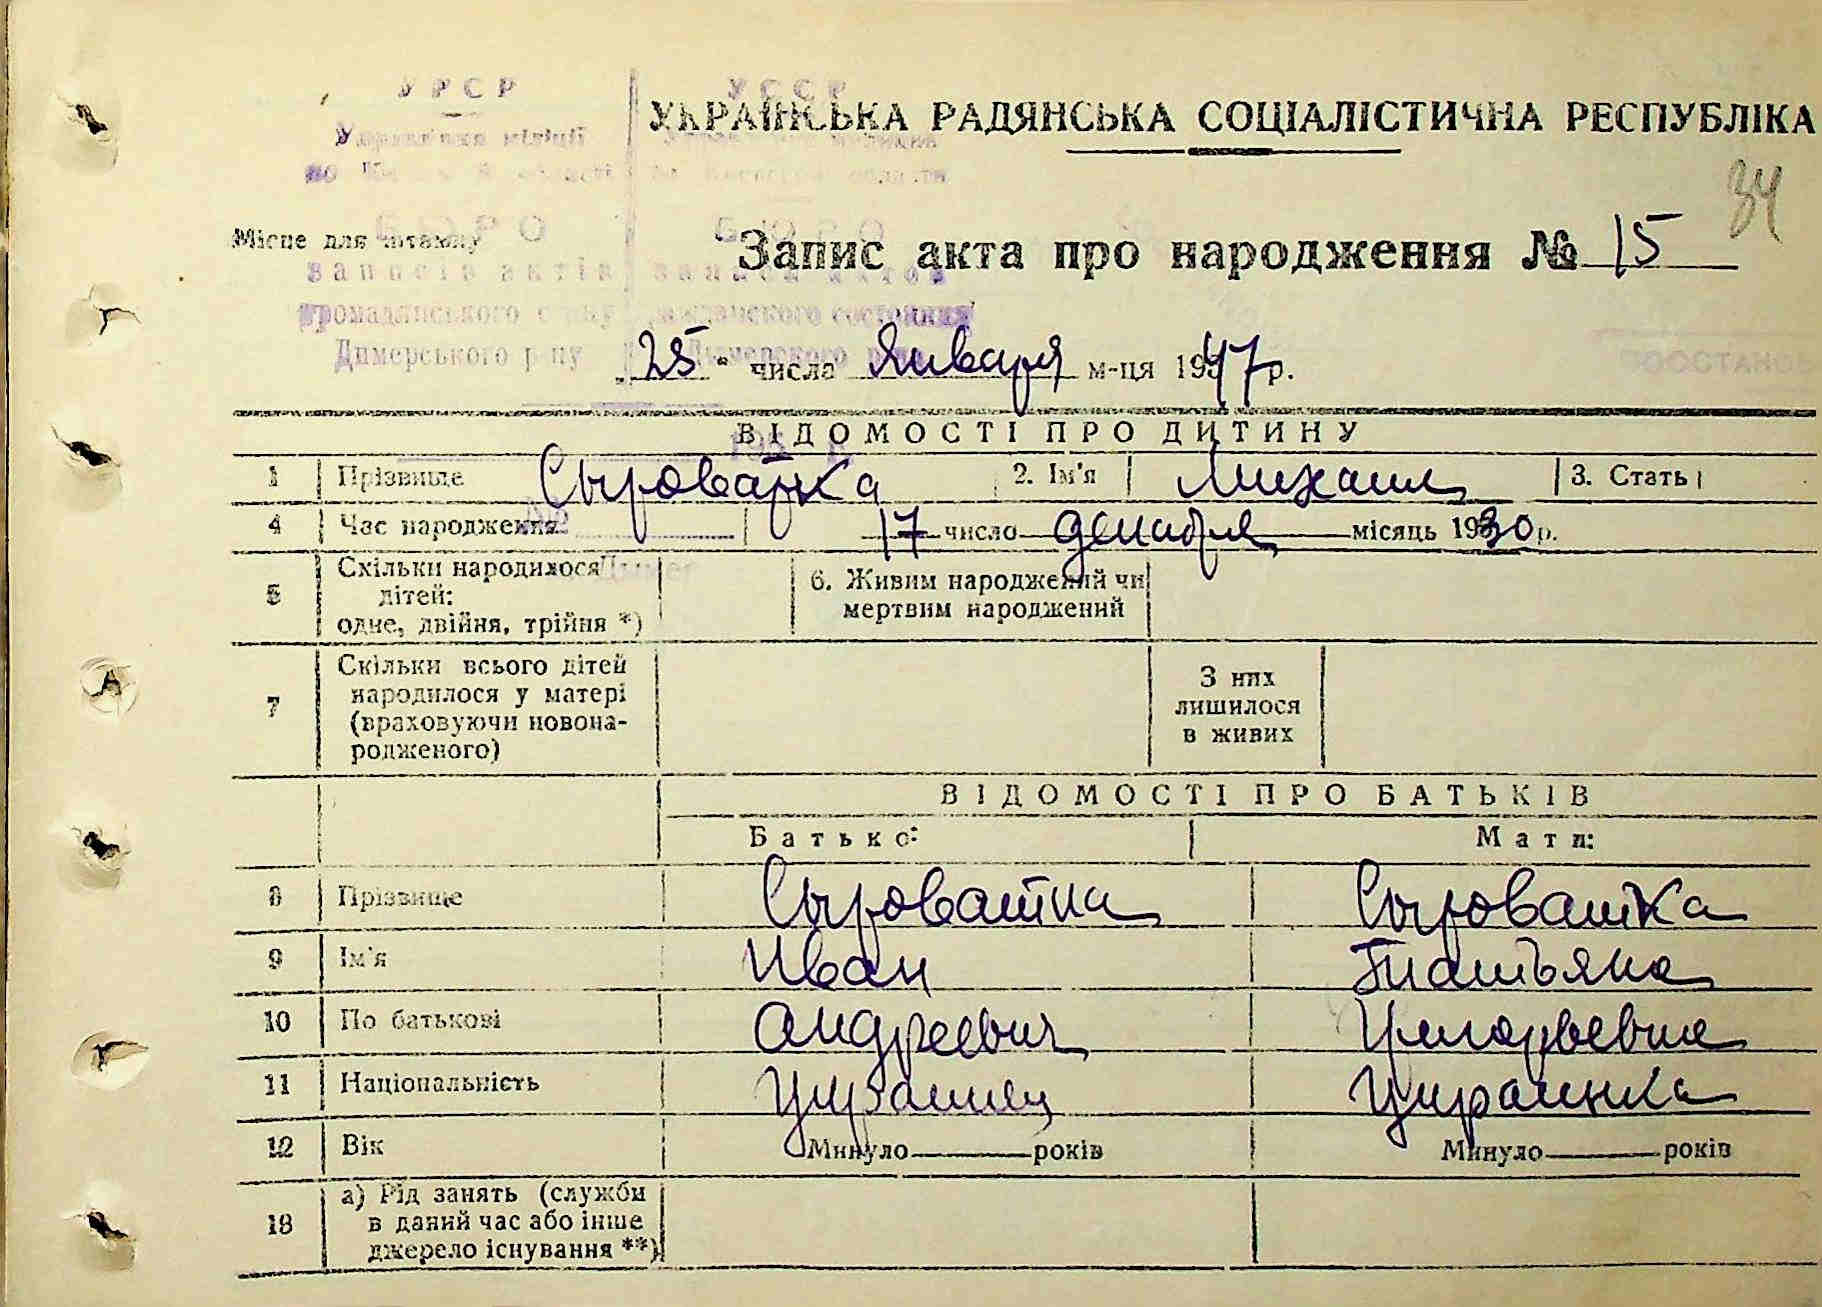 УРСР УССР
УКРАЇНСЬКА РАДЯНСЬКА СОЦІАЛІСТИЧНА РЕСПУБЛІКА
Управління міліції
по області области
34
БЮРО БЮРО
Місце для штампу
Запис акта про народження № 15
записів актів записи актов
громадянського стану гражданского состояния
Димерського р-ну Дымерского р-на
"25" числа Января м-ця 1947р.
ВІДОМОСТІ ПРО ДИТИНУ
1 Прізвище Сыроватка 2. Ім'я Михаил 3. Стать
4 Час народження 17 число декабря місяць 1930р.
5 Скільки народилося дітей: одне, двійня, трійня *)
6. Живим народжений чи мертвим народжений
7 Скільки всього дітей народилося у матері (враховуючи новона-родженого)
З них лишилося в живих
ВІДОМОСТІ ПРО БАТЬКІВ
Батько: Мати:
8 Прізвище Сыроватка Сыроватка
9 Ім'я Иван Татьяна
10 По батькові Андреевич Григорьевна
11 Національність Украинец Украинка
12 Вік Минуло років Минуло років
13 а) Рід занять (служби в даний час або інше джерело існування **)